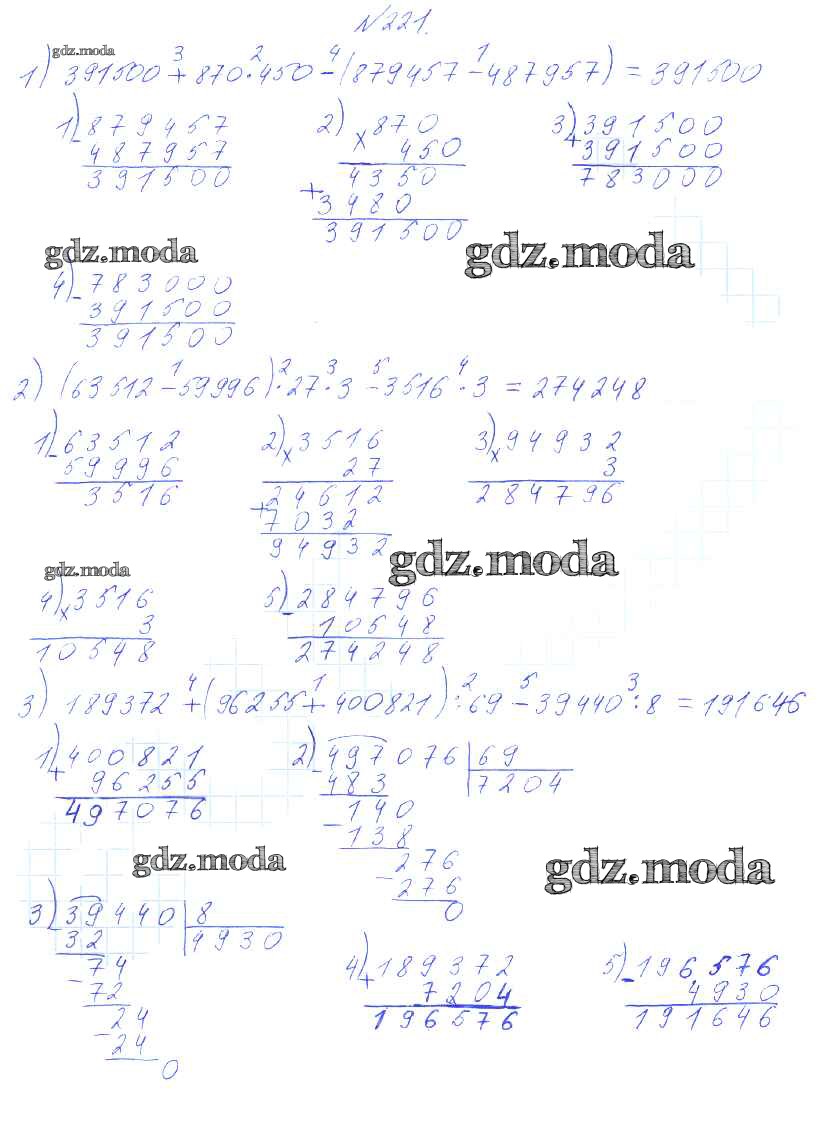 №221.
gdz.moda
1) 391500 + 870 · 450 - (879457 - 487957) = 391500
3 2 4 1
1) 879457 2) 870 3) 391500
- 487957 × 450 + 391500
391500 4350 783000
+ 3480
391500
gdz.moda gdz.moda
4) 783000
- 391500
391500
2) (63512 - 59996) · 27 · 3 - 3516 · 3 = 274248
1 2 3 5 4
1) 63512 2) 3516 3) 94932
- 59996 × 27 × 3
3516 24612 284796
+ 7032
94932
gdz.moda gdz.moda
4) 3516 5) 284796
× 3 - 10548
10548 274248
3) 189372 + (96255 + 400821) : 69 - 39440 : 8 = 191646
4 1 2 5 3
1) 400821 2) 497076 | 69
+ 96255 - 483 7204
497076 140
- 138
gdz.moda 276 gdz.moda
- 276
0
3) 39440 | 8
- 32 4930
74 4) 189372 5) 196576
- 72 + 7204 - 4930
24 196576 191646
- 24
0